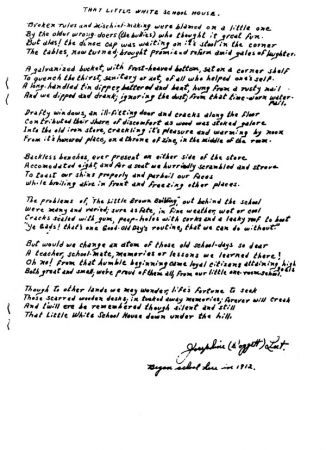 THAT LITTLE WHITE SCHOOL HOUSE.
Broken rules and mischief-making were blamed on a little one
By the older wrong-doers (the bullies) who thought it great fun.
But alas! the dunce cap was waiting on its stool in the corner
The tables, now turned, brought from and reform amid gales of laughter.
A galvanized bucket, with frost-heaved bottom, sat on a corner shelf
To quench the thirst, sanitary or not, of all who helped one's self.
A long-handled tin dipper, battered and bent, hung from a rusty nail
And we dipped and drank, ignoring the dust, from that time-worn water-
Pail.
Drafty windows, an ill-fitting door and cracks along the floor
Contributed their share of discomfort as wood was stoked galore
Into the old iron stove, crackling it's pleasure and warming by noon
From it's honored place, on a throne of zinc, in the middle of the room.
Backless benches, ever present on either side of the stove
Accomodated eight, and for a seat we hurriedly scrambled and strove
To toast our shins properly and parboil our faces
While broiling alive in front and freezing other places.
The problems of, "The Little Brown Building" out behind the school
Were many and varied; sure as fate, in fine weather, wet or cool
Cracks sealed with gum, peep-holes with torn scarves and a leaky roof to boot
"Ye Gods! that's one Good-Old-Day's routine, that we can do without"
But would we change an atom of those old school-days so dear
A teacher, school-mate, memories or lessons we learned there!
Oh no! From that humble beginning came loyal citizens attaining high
goals
Both great and small, we're proud of them all, from our little one-room school.
Though to other lands we may wander, life's fortune to seek
Those scarred wooden desks, in tucked away memories, forever will creak
And I will ere be remembered though silent and still
That Little White School House down under the hill.
Josephine
Began school here in 1912.